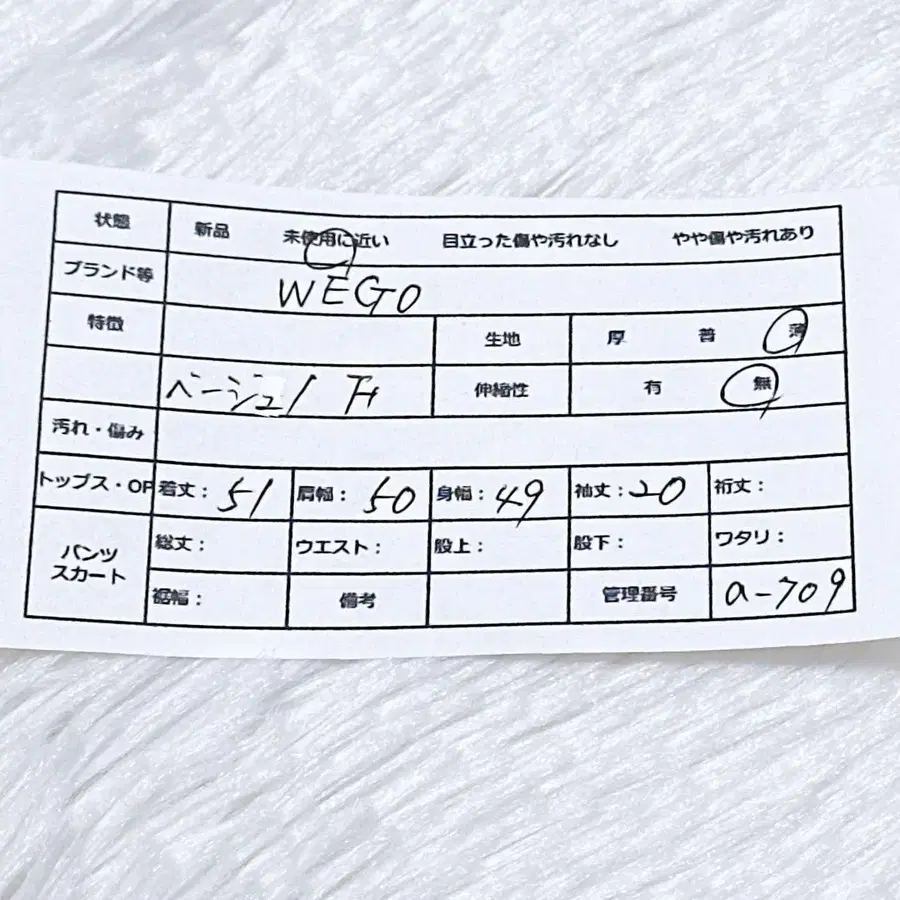 状態 新品 未使用に近い 目立った傷や汚れなし やや傷や汚れあり
ブランド等 WEGO
特徴 生地 厚 普 薄
ベージュ/ 伸縮性 有 無
汚れ・傷み
トップス・OP 着丈: 51 肩幅: 50 身幅: 49 袖丈: 20 裄丈:
パンツ スカート 総丈: ウエスト: 股上: 股下: ワタリ:
裾幅: 備考 管理番号 a-709